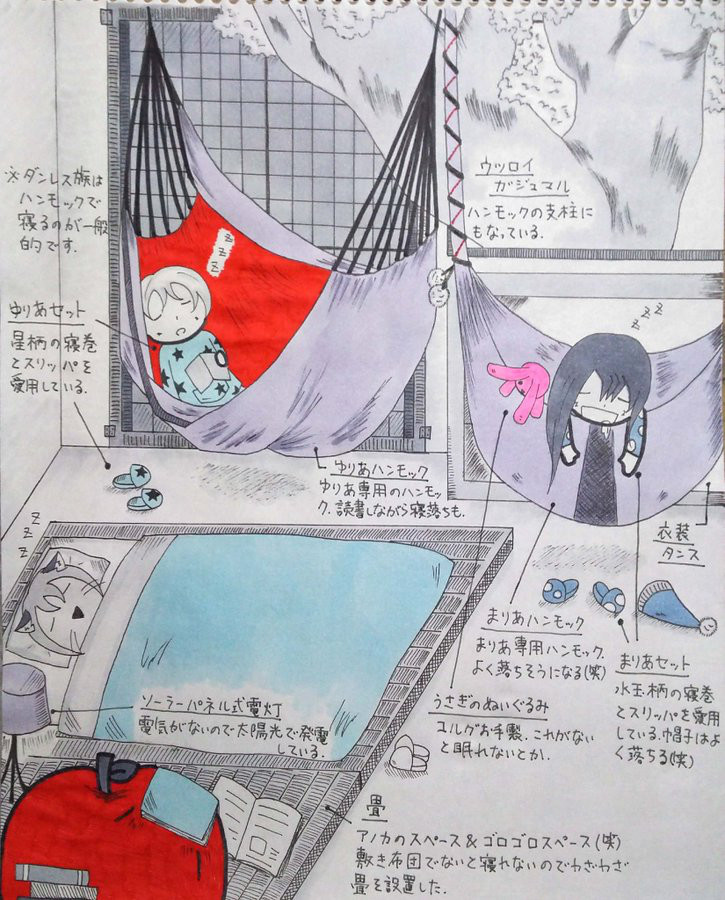 ※ダンレス族は
ハンモックで
寝るのが一般
的です。
zzz
ウツロイ
ガジュマル
ハンモックの支柱に
もなっている。
ゆりあセット
星柄の寝巻
とスリッパを
愛用している。
zzz
ゆりあハンモック
ゆりあ専用のハンモッ
ク。読書しながら寝落ちも。
衣装
タンス
zzz
まりあハンモック
まりあ専用ハンモック。
よく落ちそうになる(笑)
まりあセット
水玉柄の寝巻
とスリッパを愛用
している。帽子はよ
く落ちる(笑)
うさぎのぬいぐるみ
コルグお手製。これがない
と眠れないとか。
ソーラーパネル式電灯
電気がないので太陽光で発電
している。
畳
アノカのスペース&ゴロゴロスペース(笑)
敷き布団でないと寝れないのでわざわざ
畳を設置した。